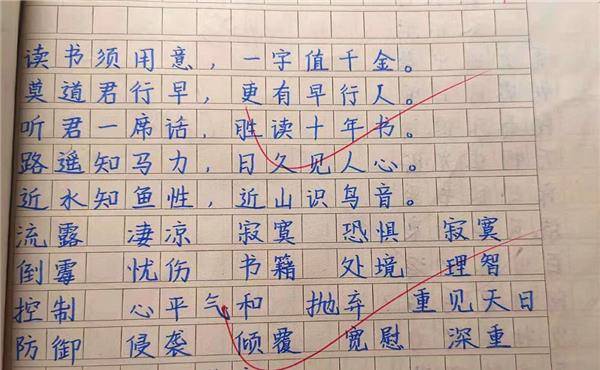 读书须用意，一字值千金。
莫道君行早，更有早行人。
听君一席话，胜读十年书。
路遥知马力，日久见人心。
近水知鱼性，近山识鸟音。
流露 凄凉 寂寞 恐惧 寂寞
倒霉 忧伤 书籍 处境 理智
控制 心平气和 抛弃 重见天日
防御 侵袭 倾覆 宽慰 深重